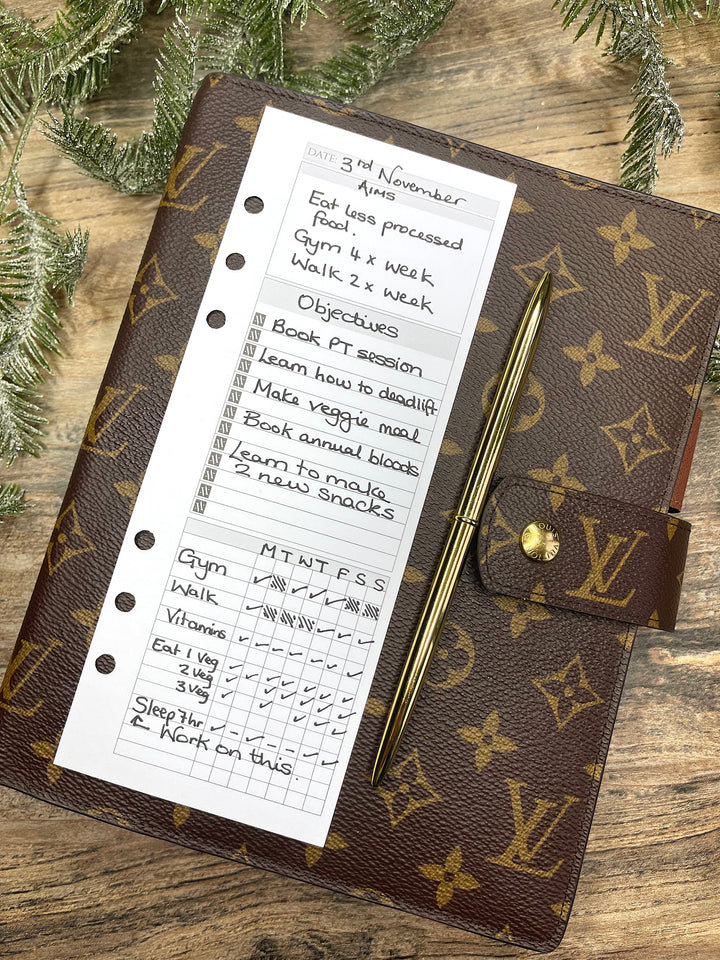 DATE: 3rd November
AIMS
Eat less processed
food.
Gym 4 x week
Walk 2 x week
Objectives
Book PT session
Learn how to deadlift
Make veggie meal
Book annual bloods
Learn to make
2 new snacks
M T W T F S S
Gym ✓ ✓ ✓ ✓
Walk ✓ ✓ ✓ ✓
Vitamins ✓ ✓ ✓ ✓ ✓ ✓
Eat 1 Veg ✓ ✓ ✓ ✓ ✓ ✓ ✓
2 veg
3 veg
Sleep 7hr ✓ – ✓ – – ✓ ✓
← Work on this.
LV
LV
LV
LV
LV
LV
LV